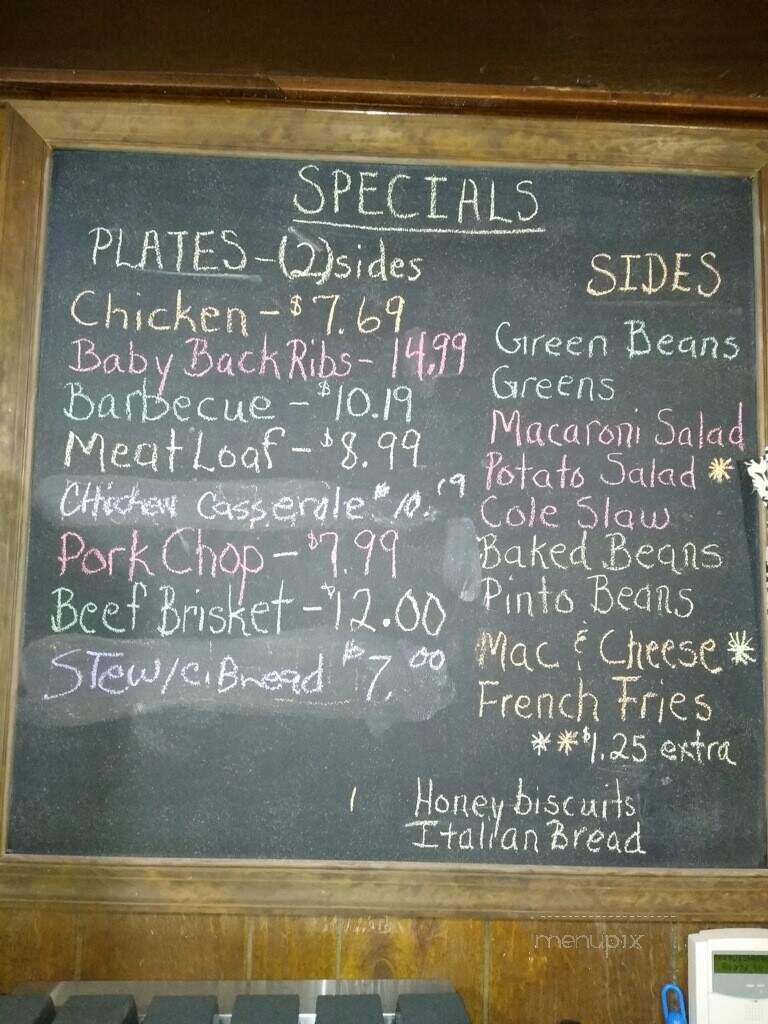 SPECIALS
PLATES-(2)sides
Chicken - $7.69
Baby Back Ribs- 14.99
Barbecue - $10.19
Meat Loaf - $8.99
Chicken Casserole $10.19
Pork Chop - $7.99
Beef Brisket - $12.00
Stew/c. Bread $7.00
SIDES
Green Beans
Greens
Macaroni Salad
Potato Salad *
Cole Slaw
Baked Beans
Pinto Beans
Mac & Cheese *
French Fries
** $1.25 extra
Honey biscuits
Italian Bread
menupix